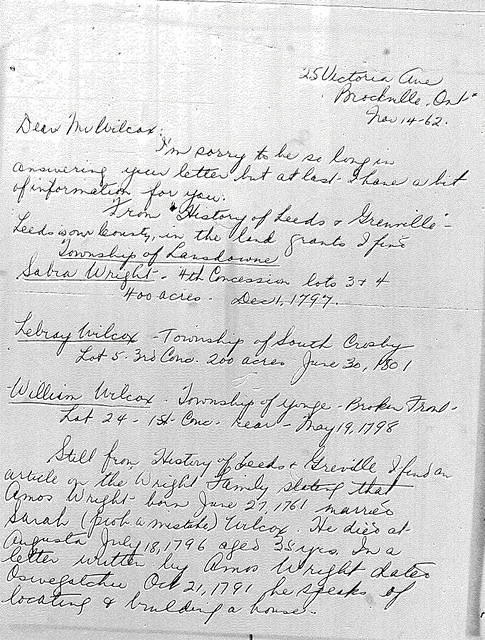 25 Victoria Ave
Brockville, Ont
Nov 14-62.
Dear Mr Wilcox:
I'm sorry to be so long in
answering your letter but at last I have a bit
of information for you.
From "History of Leeds & Grenville" -
Leeds now County, in the land grants I find
Township of Lansdowne
Sabra Wright - 4th Concession lots 3 & 4
400 acres. Dec 1, 1797.
Lebray Wilcox - Township of South Crosby
Lot 5 - 3rd Conc. 200 acres June 30, 1801
William Wilcox - Township of Yonge - Broken Front -
Lot 24 - 1st Conc - rear - May 19, 1798
Still from History of Leeds & Greville I find an
article on the Wright Family stating that
Amos Wright born June 27, 1761 married
Sarah (prob a mistake) Wilcox. He died at
Augusta July 18, 1796 aged 35 yrs. In a
letter written by Amos Wright dated
Oswegatchie Oct 21, 1791 he speaks of
locating & building a house.